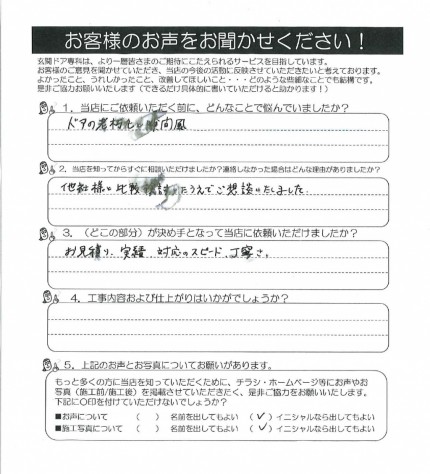 お客様のお声をお聞かせください！
玄関ドア専科は、より一層皆さまのご期待にこたえられるサービスを目指しています。
お客様のご意見を聞かせていただき、当店の今後の活動に反映させていただきたいと考えております。
よかったこと、うれしかったこと、改善してほしいこと・・・どのような些細なことでも結構です。
是非ご協力お願いいたします（できるだけ具体的に書いていただけると助かります！）
1．当店にご依頼いただく前に、どんなことで悩んでいましたか？
ドアの老朽化
2．当店を知ってからすぐに相談いただけましたか？連絡しなかった場合はどんな理由がありましたか？
他社様と比較検討したうえでご相談いたしました.
3．（どこの部分）が決め手となって当店に依頼いただけましたか？
お見積り、実績、対応のスピード、丁寧さ。
4．工事内容および仕上がりはいかがでしょうか？
5．上記のお声とお写真についてお願いがあります。
もっと多くの方に当店を知っていただくために、チラシ・ホームページ等にお声やお
写真（施工前/施工後）を掲載させていただきたく、是非ご協力をお願いいたします。
下記に○印を付けていただけないでしょうか？
■お声について （　） 名前を出してもよい （✓） イニシャルなら出してもよい
■施工写真について （　） 名前を出してもよい （✓） イニシャルなら出してもよい